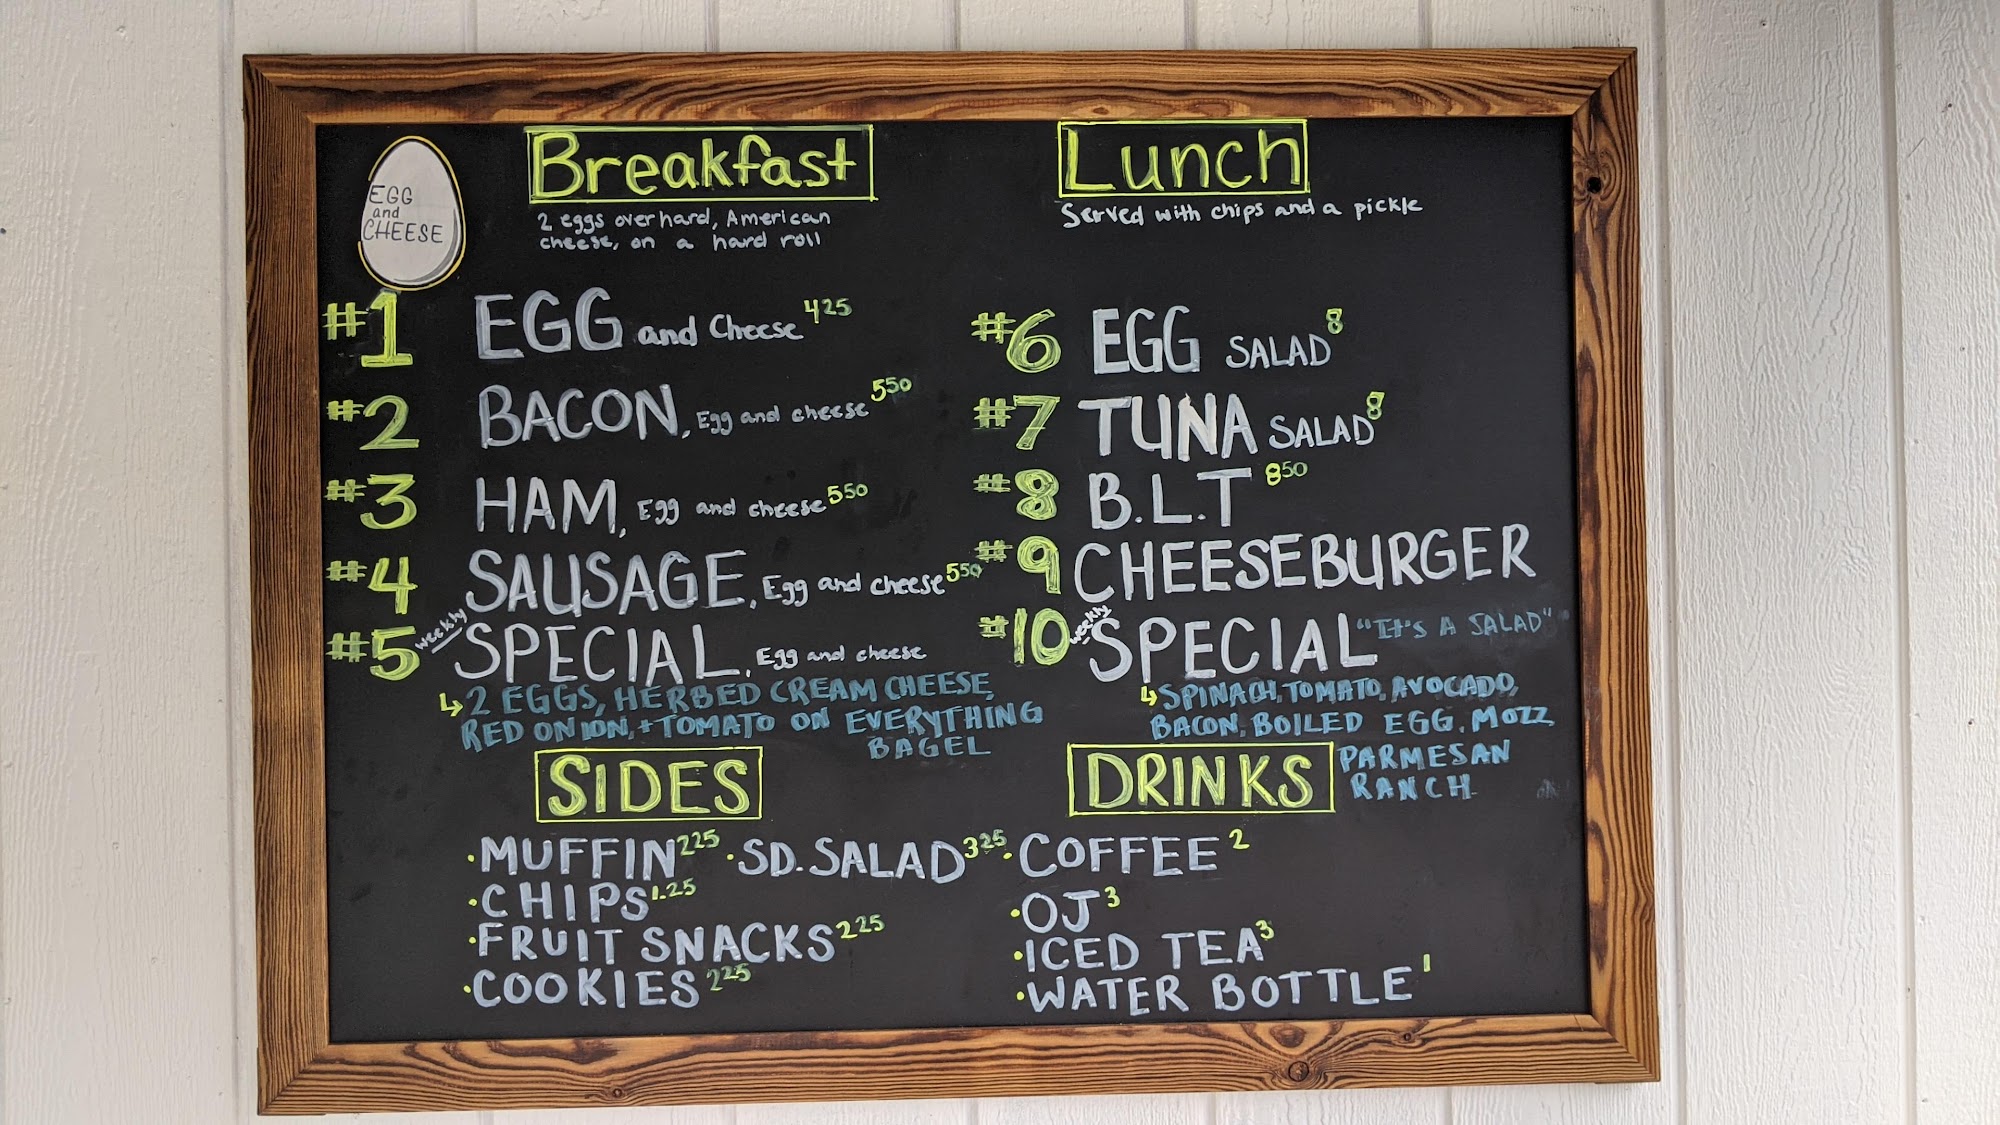 EGG
and
CHEESE
Breakfast
2 eggs over hard, American
cheese, on a hard roll
#1 EGG and Cheese 4 25
#2 BACON, Egg and cheese 5 50
#3 HAM, Egg and cheese 5 50
#4 SAUSAGE, Egg and cheese 5 50
#5 weekly SPECIAL, Egg and cheese
↳ 2 EGGS, HERBED CREAM CHEESE,
RED ONION, + TOMATO ON EVERYTHING
BAGEL
Lunch
Served with chips and a pickle
#6 EGG SALAD 8
#7 TUNA SALAD 8
#8 B.L.T 8 50
#9 CHEESEBURGER
#10 weekly SPECIAL "IT'S A SALAD"
↳ SPINACH, TOMATO, AVOCADO,
BACON, BOILED EGG, MOZZ
PARMESAN
RANCH
SIDES
· MUFFIN 2 25 · SD. SALAD 3 25
· CHIPS 1.25
· FRUIT SNACKS 2 25
· COOKIES 2 25
DRINKS
· COFFEE 2
· OJ 3
· ICED TEA 3
· WATER BOTTLE 1